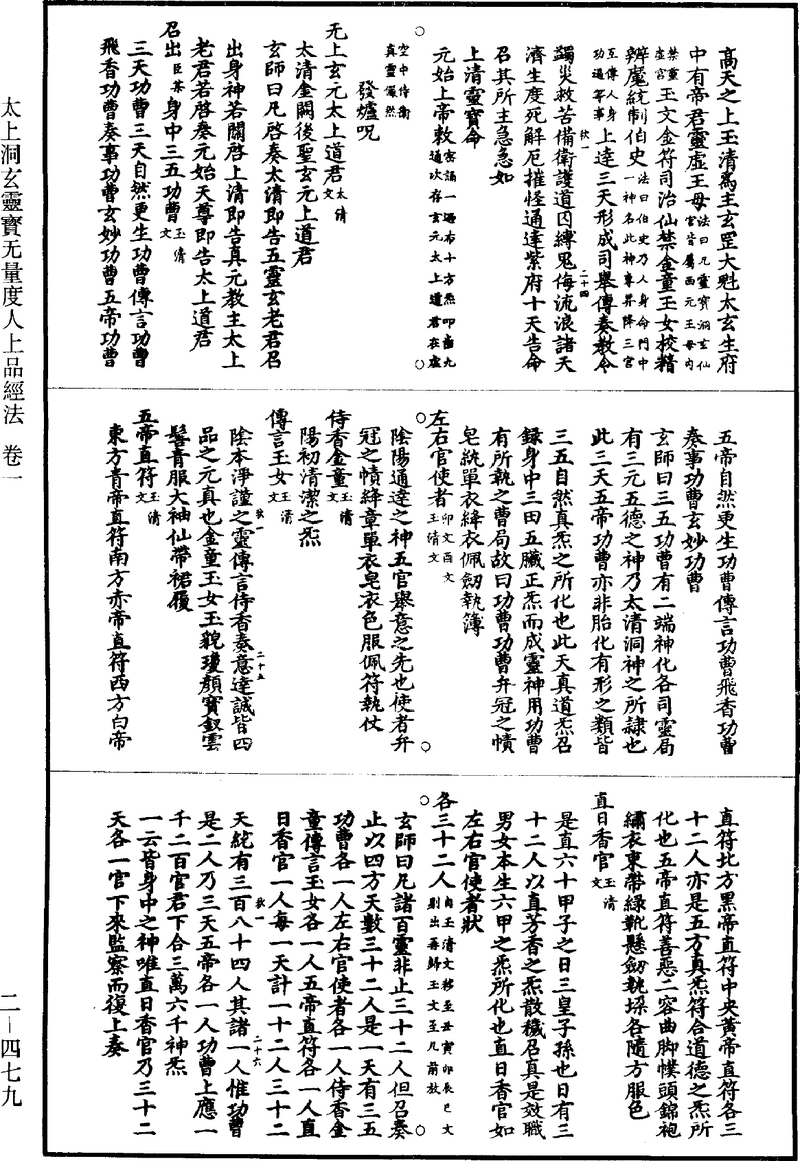 高天之上玉清爲主玄罡大魁太玄生府
中有帝君靈虛王母法曰九靈寶洞玄仙宮皆屬西元王母內
禁靈虛官玉文金符司治仙禁金童玉女校籍
辨魔統制伯史法曰伯史乃人身命門中一神名此神專昇降三宮
互傳人身功過等事上達三天形成司舉傳奏教令
蠲災救苦備衛護道囚縛鬼侮流浪諸天
濟生度死解厄摧怪通達紫府十天告命
召其所主急急如
上清靈寶命
元始上帝敕密誦一遍布十方炁叩齒九通次存玄元太上道君在虛
空中侍衛真靈儼然
發爐呪
无上玄元太上道君太清文
太清金闕後聖玄元上道君
玄師曰凡啓奏太清即告五靈玄老君召
出身神若關啓上清即告真元教主太上
老君若啓奏元始天尊即告太上道君
召出臣某身中三五功曹玉清文
三天功曹三天自然更生功曹傳言功曹
飛香功曹奏事功曹玄妙功曹五帝功曹
五帝自然更生功曹傳言功曹飛香功曹
奏事功曹玄妙功曹
玄師曰三五功曹有二端神化各司靈局
有三元五德之神乃太清洞神之所隷也
此三天五帝功曹亦非胎化有形之類皆
三五自然真炁之所化也此天真道炁召
録身中三田五臟正炁而成靈神用功曹
有所執之曹局故曰功曹功曹弁冠之幘
皂統單衣絳衣佩劒執簿
左右官使者卯文酉文玉清文
陰陽通達之神五官舉意之先也使者弁
冠之幘絳章單衣皂衣色服佩符執仗
侍香金童玉清文
陽初清潔之炁
傳言玉女玉清文
陰本淨謐之靈傳言侍香奏意達誠皆四
品之元真也金童玉女玉貌瓊顏寶釵雲
髻青服大袖仙帶裙履
五帝直符玉清文
東方青帝直符南方赤帝直符西方白帝
直符北方黑帝直符中央黃帝直符各三
十二人亦是五方真炁符合道德之炁所
化也五帝直符善惡二容曲脚幞頭錦袍
繡衣束帶綠靴懸劒執梁各隨方服色
直日香官玉清文
是直六十甲子之日三皇子孫也日有三
十二人以直芳香之炁散穢召真是效職
男女本生六甲之炁所化也直日香官如
左右官使者狀
各三十二人自玉清文移至丑寅卯辰巳文則出再歸玉文至凡前放
玄師曰凡諸百靈非止三十二人但召奏
止以四方天數三十二人是一天有三五
功曹各一人左右官使者各一人侍香金
童傳言玉女各一人五帝直符各一人直
日香官一人每一天計一十二人三十二
天統有三百八十四人其諸一人惟功曹
是二人乃三天五帝各一人功曹上應一
千二百官君下合三萬六千神炁
一云皆身中之神唯直日香官乃三十二
天各一官下來監察而復上奏
太上洞玄靈寶无量度人上品經法　卷一
二－四七九